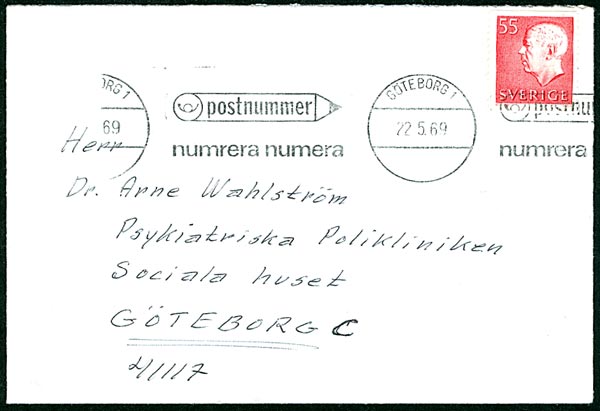 55
SVERIGE
ØRG 1
69
postnummer
numrera numera
GÖTEBORG 1
22.5.69
postnu
numrera
Herr
Dr. Arne Wahlström
Psykiatriska Polikliniken
Sociala huset
GÖTEBORG C
41117